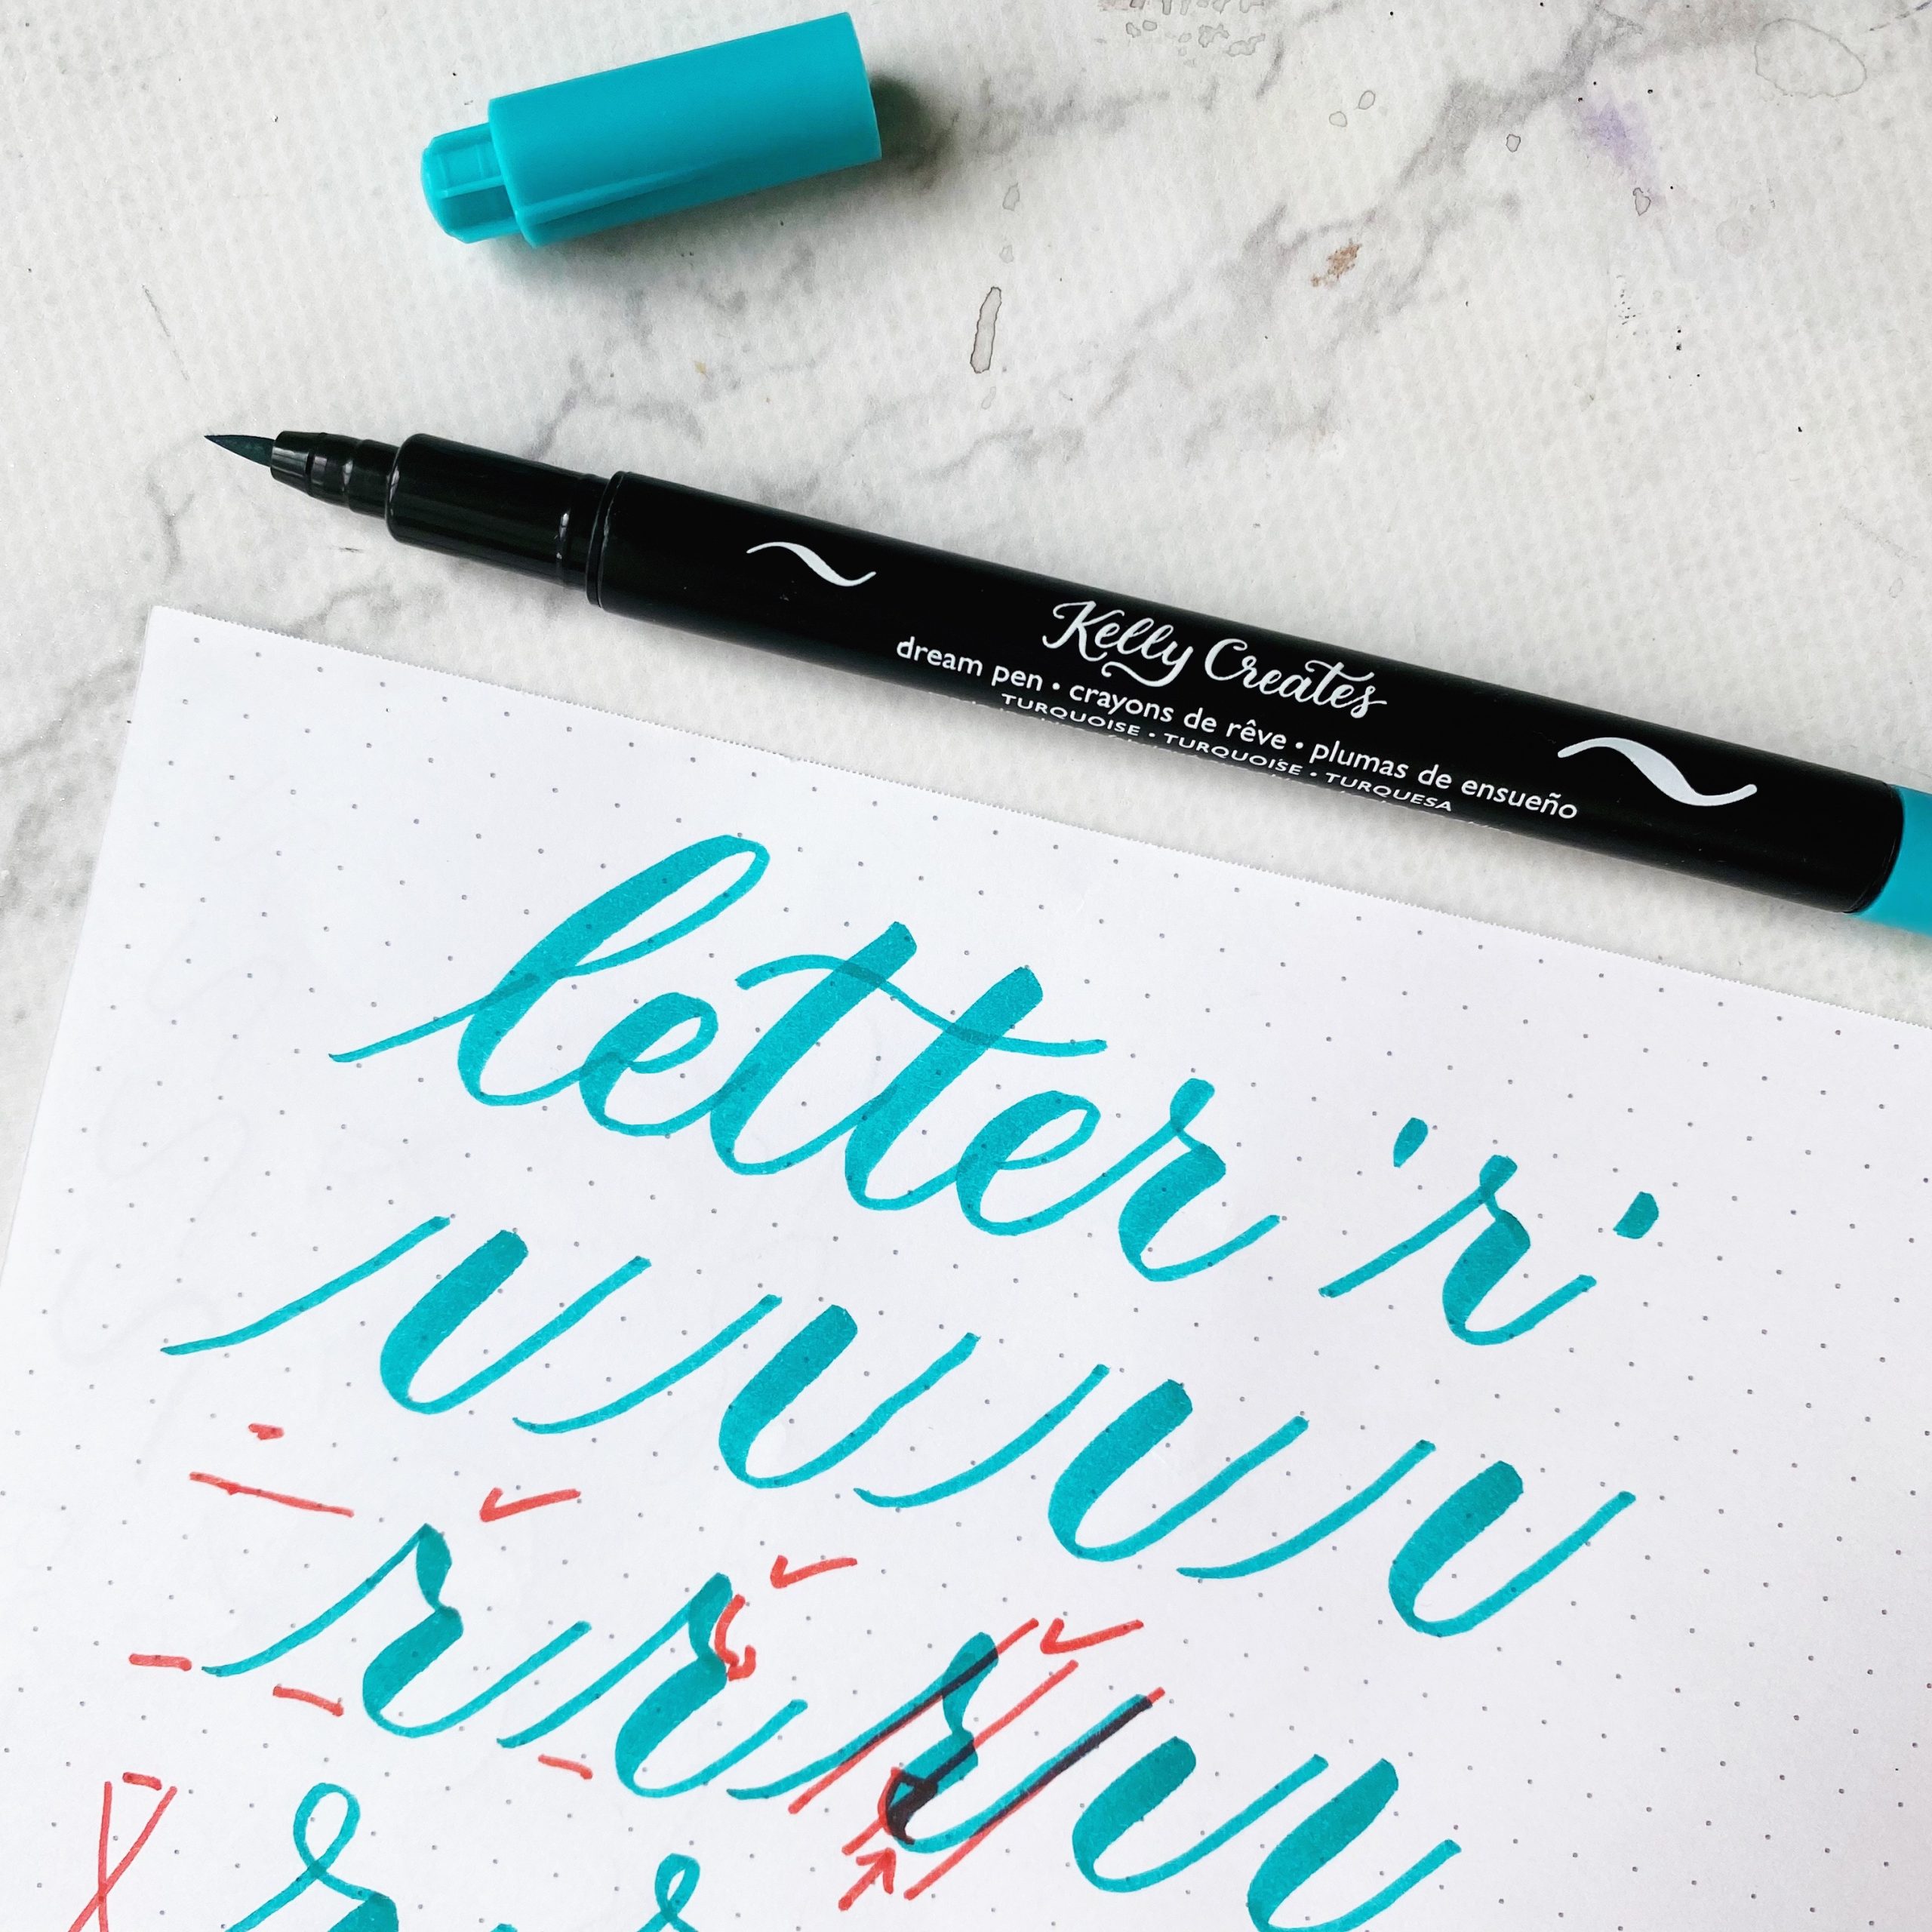 Kelly Creates
dream pen • crayons de rêve • plumas de ensueño
TURQUOISE • TURQUOISE • TURQUESA
letter 'r'
r r r